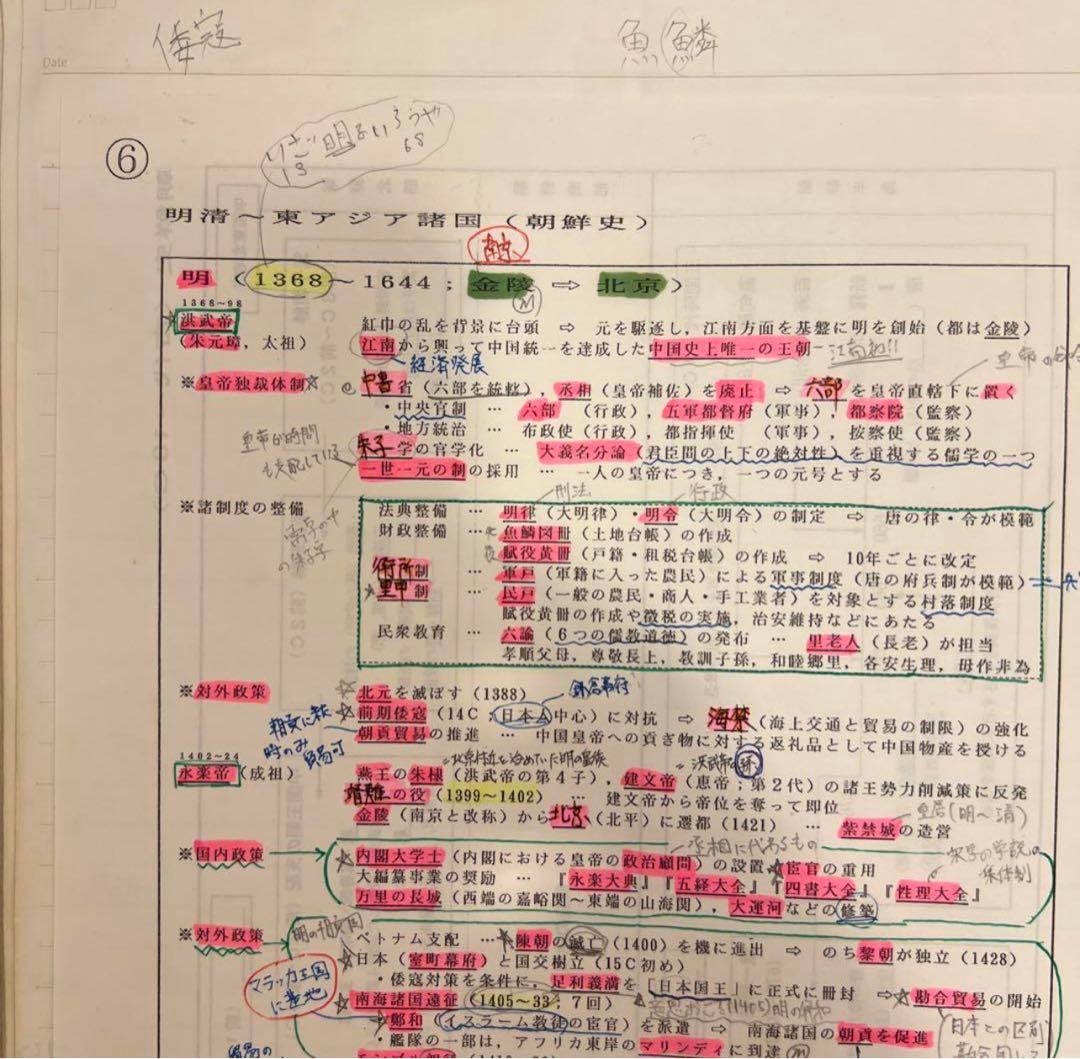 倭寇
魚鱗
Date
明るいろうや
68
⑥
明清～東アジア諸国（朝鮮史）
南京
明（1368～1644；金陵⇨北京）
1368～98
洪武帝
紅巾の乱を背景に台頭 ⇨ 元を駆逐し，江南方面を基盤に明を創始（都は金陵）
（朱元璋，太祖）
江南から興って中国統一を達成した中国史上唯一の王朝
経済発展
※皇帝独裁体制☆
中書省（六部を統轄），丞相（皇帝補佐）を廃止 ⇨ 六部を皇帝直轄下に置く
・中央官制 … 六部（行政），五軍都督府（軍事），都察院（監察）
・地方統治 … 布政使（行政），都指揮使（軍事），按察使（監察）
皇帝が時間
も支配している
朱子学の官学化 … 大義名分論（君臣間の上下の絶対性）を重視する儒学の一つ
一世一元の制の採用 … 一人の皇帝につき，一つの元号とする
刑法
行政
※諸制度の整備
法典整備 … 明律（大明律）・明令（大明令）の制定 ⇨ 唐の律・令が模範
財政整備 … 魚鱗図冊（土地台帳）の作成
賦役黄冊（戸籍・租税台帳）の作成 ⇨ 10年ごとに改定
衛所制 … 軍戸（軍籍に入った農民）による軍事制度（唐の府兵制が模範）
里甲制 … 民戸（一般の農民・商人・手工業者）を対象とする村落制度
賦役黄冊の作成や徴税の実施，治安維持などにあたる
民衆教育 … 六諭（6つの儒教道徳）の発布 … 里老人（長老）が担当
孝順父母，尊敬長上，教訓子孫，和睦郷里，各安生理，毋作非為
※対外政策
☆北元を滅ぼす（1388）
鎌倉幕府
☆前期倭寇（14C；日本人中心）に対抗 ⇨ 海禁（海上交通と貿易の制限）の強化
朝貢貿易の推進 … 中国皇帝への貢ぎ物に対する返礼品として中国物産を授ける
時のみ貿易可
1402～24
永楽帝（成祖）
燕王の朱棣（洪武帝の第4子），建文帝（恵帝；第2代）の諸王勢力削減策に反発
靖難の役（1399～1402） … 建文帝から帝位を奪って即位
皇居（明～清）
金陵（南京と改称）から北京（北平）に遷都（1421） … 紫禁城の造営
丞相に代わるもの
※国内政策
☆内閣大学士（内閣における皇帝の政治顧問）の設置 ★宦官の重用
大編纂事業の奨励 … 『永楽大典』『五経大全』『四書大全』『性理大全』
万里の長城（西端の嘉峪関～東端の山海関），大運河などの修築
※対外政策
ベトナム支配 … ☆陳朝の滅亡（1400）を機に進出 ⇨ のち黎朝が独立（1428）
日本（室町幕府）と国交樹立（15C初め）
マラッカ王国
に基地
・倭寇対策を条件に，足利義満を「日本国王」に正式に冊封 ⇨ ☆勘合貿易の開始
☆南海諸国遠征（1405～33；7回）
日本との区別
鄭和（イスラーム教徒の宦官）を派遣 ⇨ 南海諸国の朝貢を促進
・艦隊の一部は，アフリカ東岸のマリンディに到達